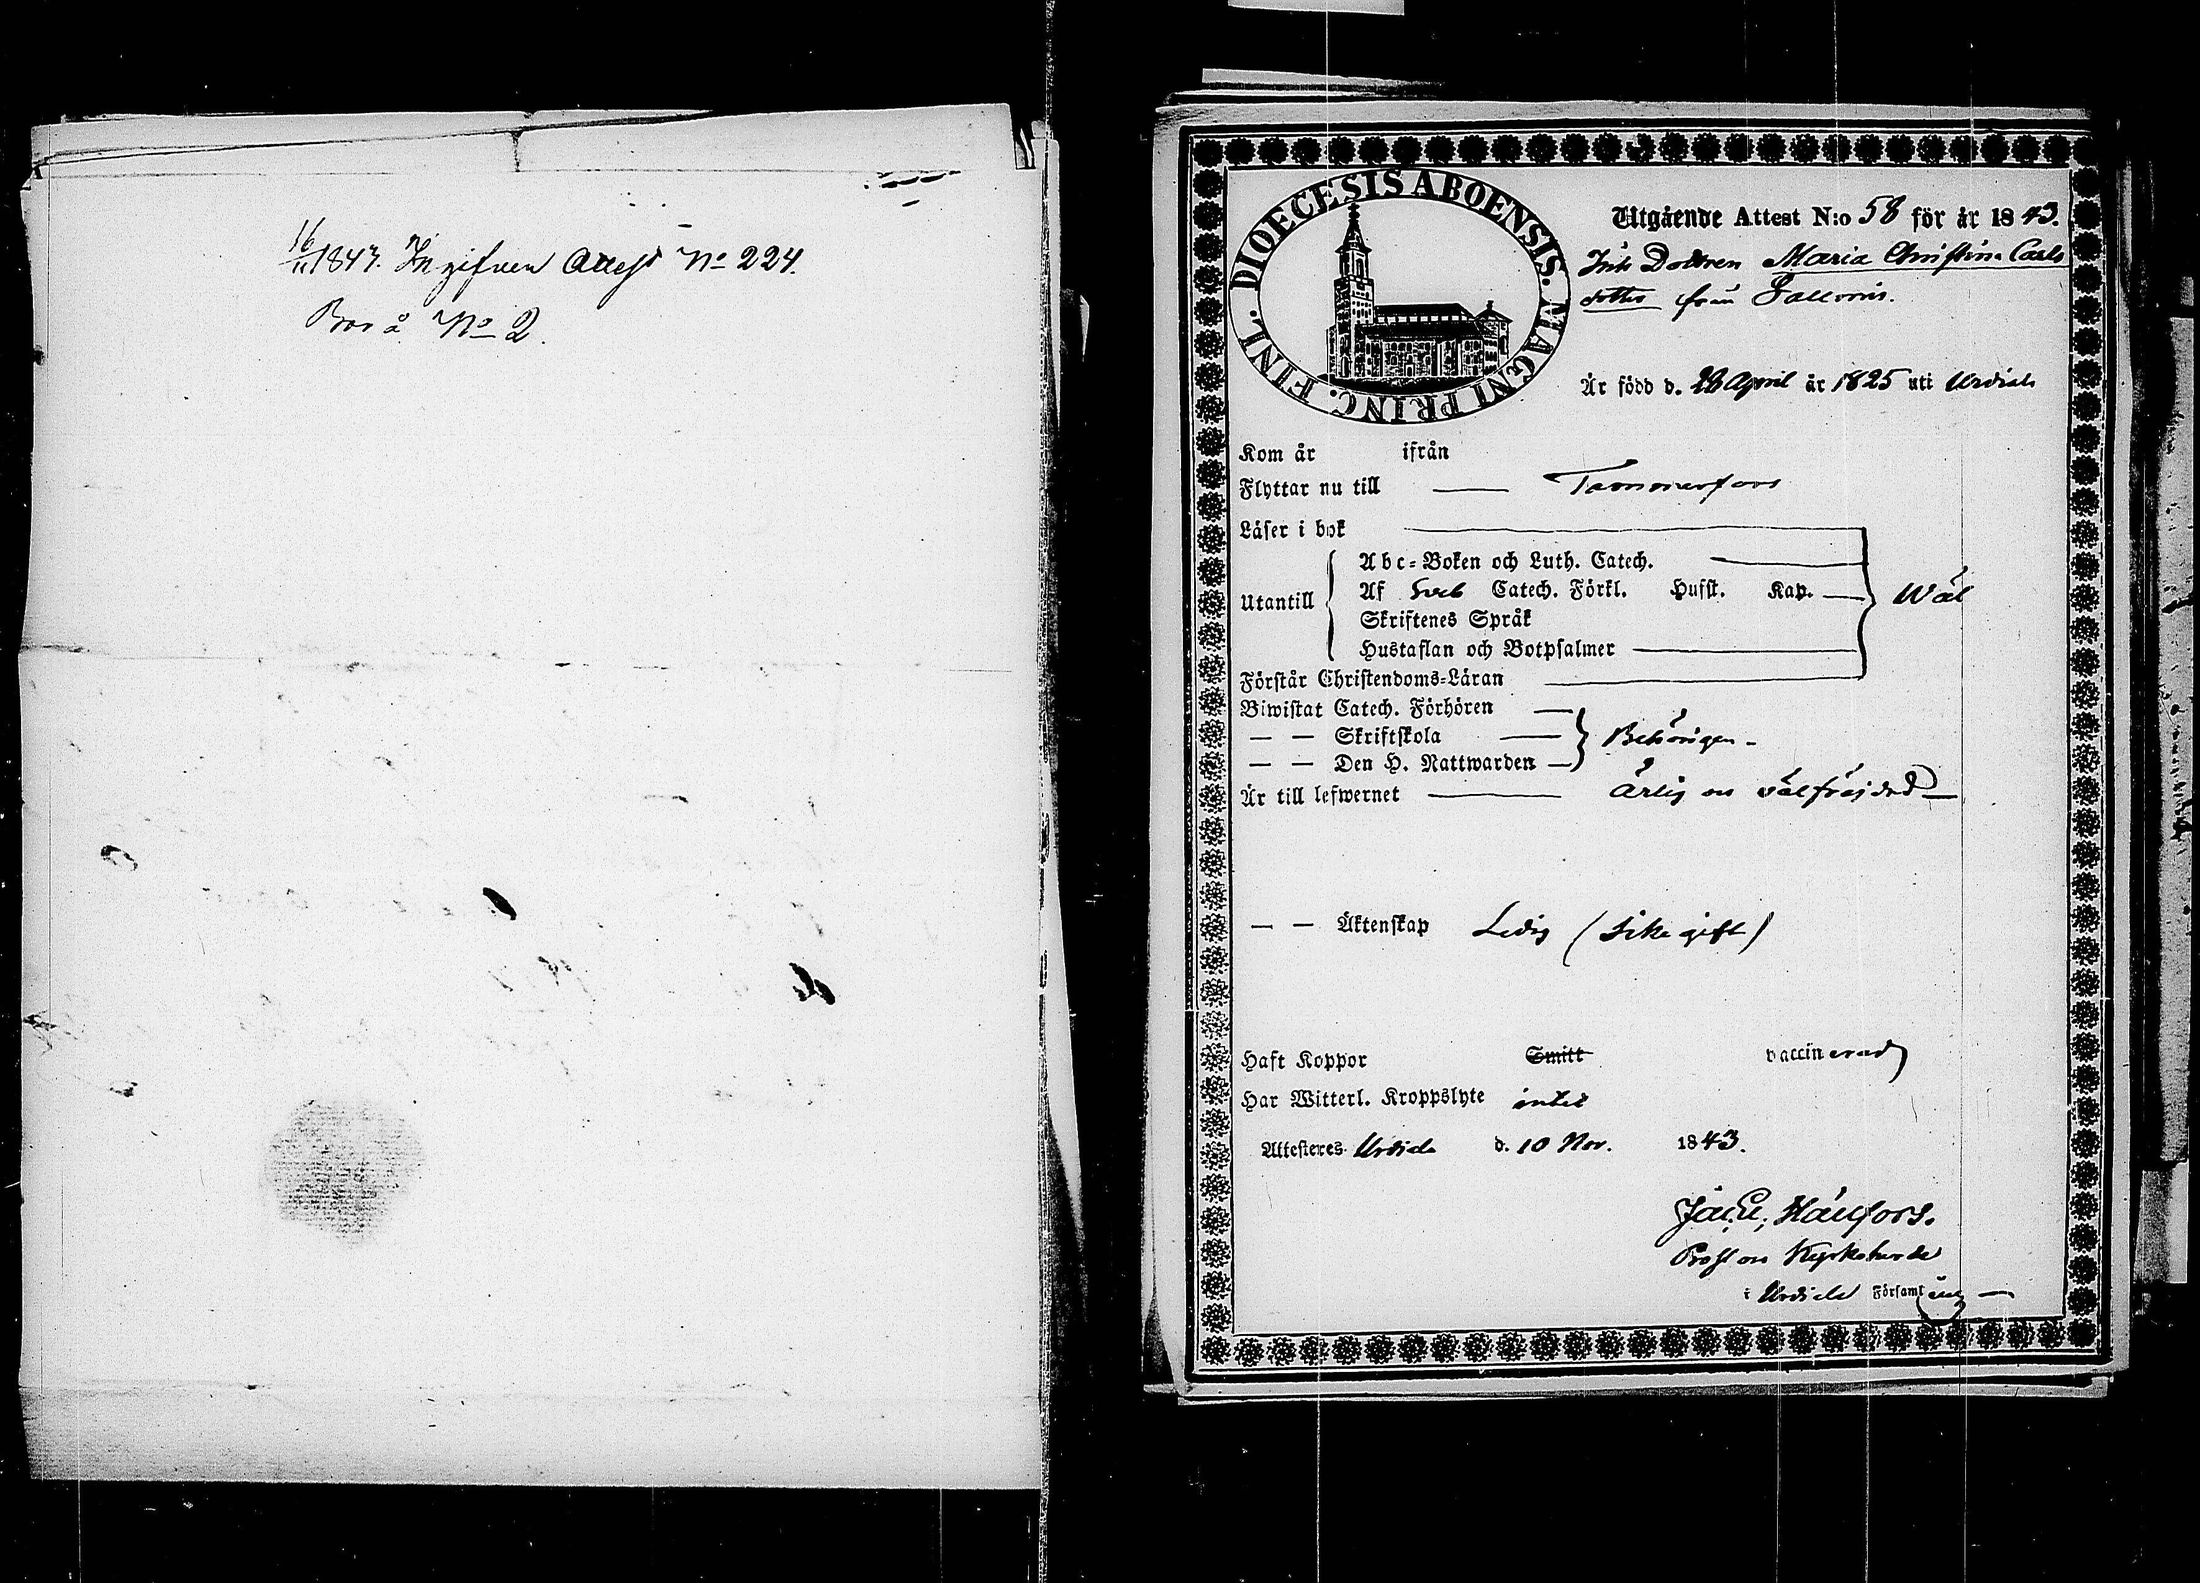 16/11 1847. Ingifven Attest No 224.
Bor å No 2.
DIOECESIS ABOENSIS. MAGNI PRINC. FINL.
Utgående Attest N:o 58 för år 1843.
Inh Dottren Maria Christina Carls
dotter från
Är född d. 28 April år 1825 uti Urdiala
Kom år ifrån
Flyttar nu till — Tammerfors
Läser i bok
Abc-Boken och Luth. Catech.
Utantill Af Sveb Catech. Förkl. Husft. Kap. — Wäl
Skriftenes Språk
Hustaflan och Botpsalmer
Förstår Christendoms-Läran
Biwistat Catech. Förhören —
— — Skriftskola — Behörigen —
— — Den H. Nattwarden —
Är till lefwernet — Ärlig och välfräjdad —
— — Äktenskap Ledig (icke gift)
Haft Koppor Smitt vaccinerad
Har Witterl. Kroppslyte intet
Attesteres Urdiala d. 10 Nov. 1843.
Hällfors.
Prost och Kyrkoherde
i Urdiala Församling —